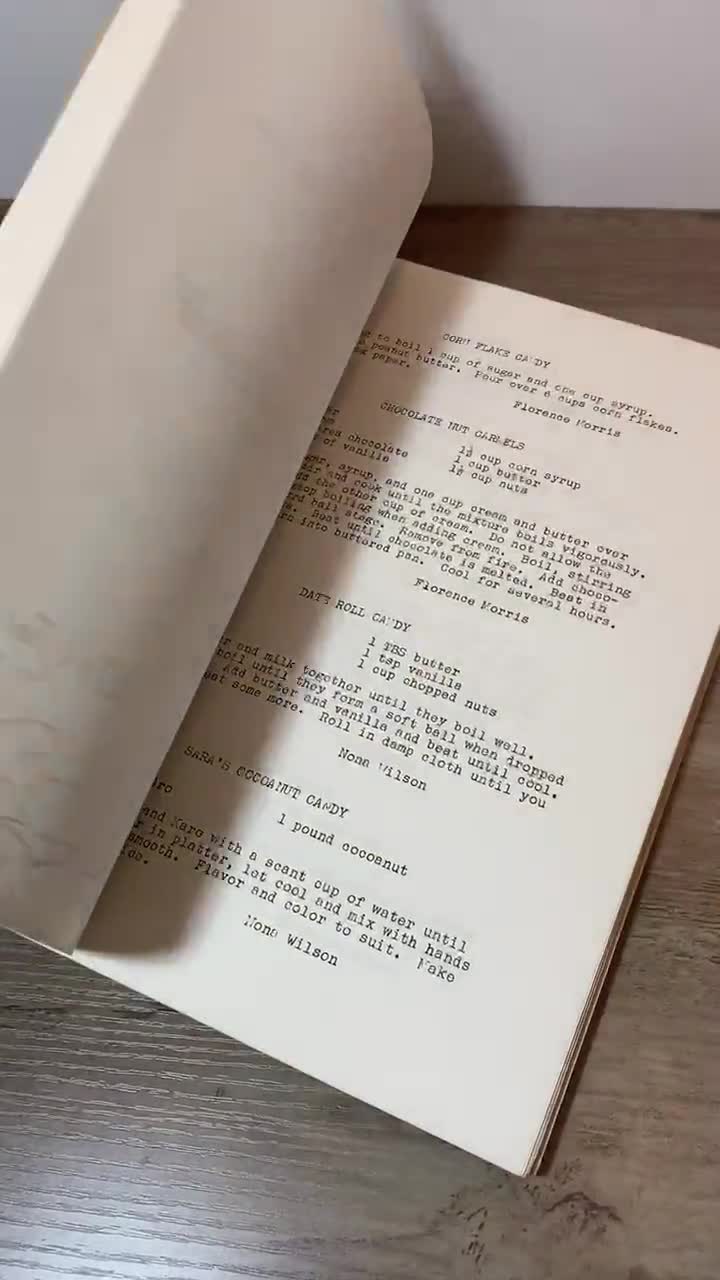 CORN FLAKE CANDY
to boil 1 cup of sugar and one cup syrup.
peanut butter. Pour over 6 cups corn flakes.
paper.
Florence Morris
CHOCOLATE NUT CARMELS
1½ cup corn syrup
chocolate 1 cup butter
of vanilla 1½ cup nuts
syrup, and one cup cream and butter over
and cook until the mixture boils vigorously.
the other cup of cream. Do not allow the
stop boiling when adding cream. Boil, stirring
ball stage. Remove from fire. Add choco-
Beat until chocolate is melted. Beat in
into buttered pan. Cool for several hours.
Florence Morris
DATE ROLL CANDY
1 TBS butter
1 tsp vanilla
1 cup chopped nuts
and milk together until they boil well.
boil until they form a soft ball when dropped
Add butter and vanilla and beat until cool.
some more. Roll in damp cloth until you
Nona Wilson
SARA'S COCOANUT CANDY
1 pound cocoanut
and Karo with a scant cup of water until
in platter, let cool and mix with hands
smooth. Flavor and color to suit. Make
Nona Wilson